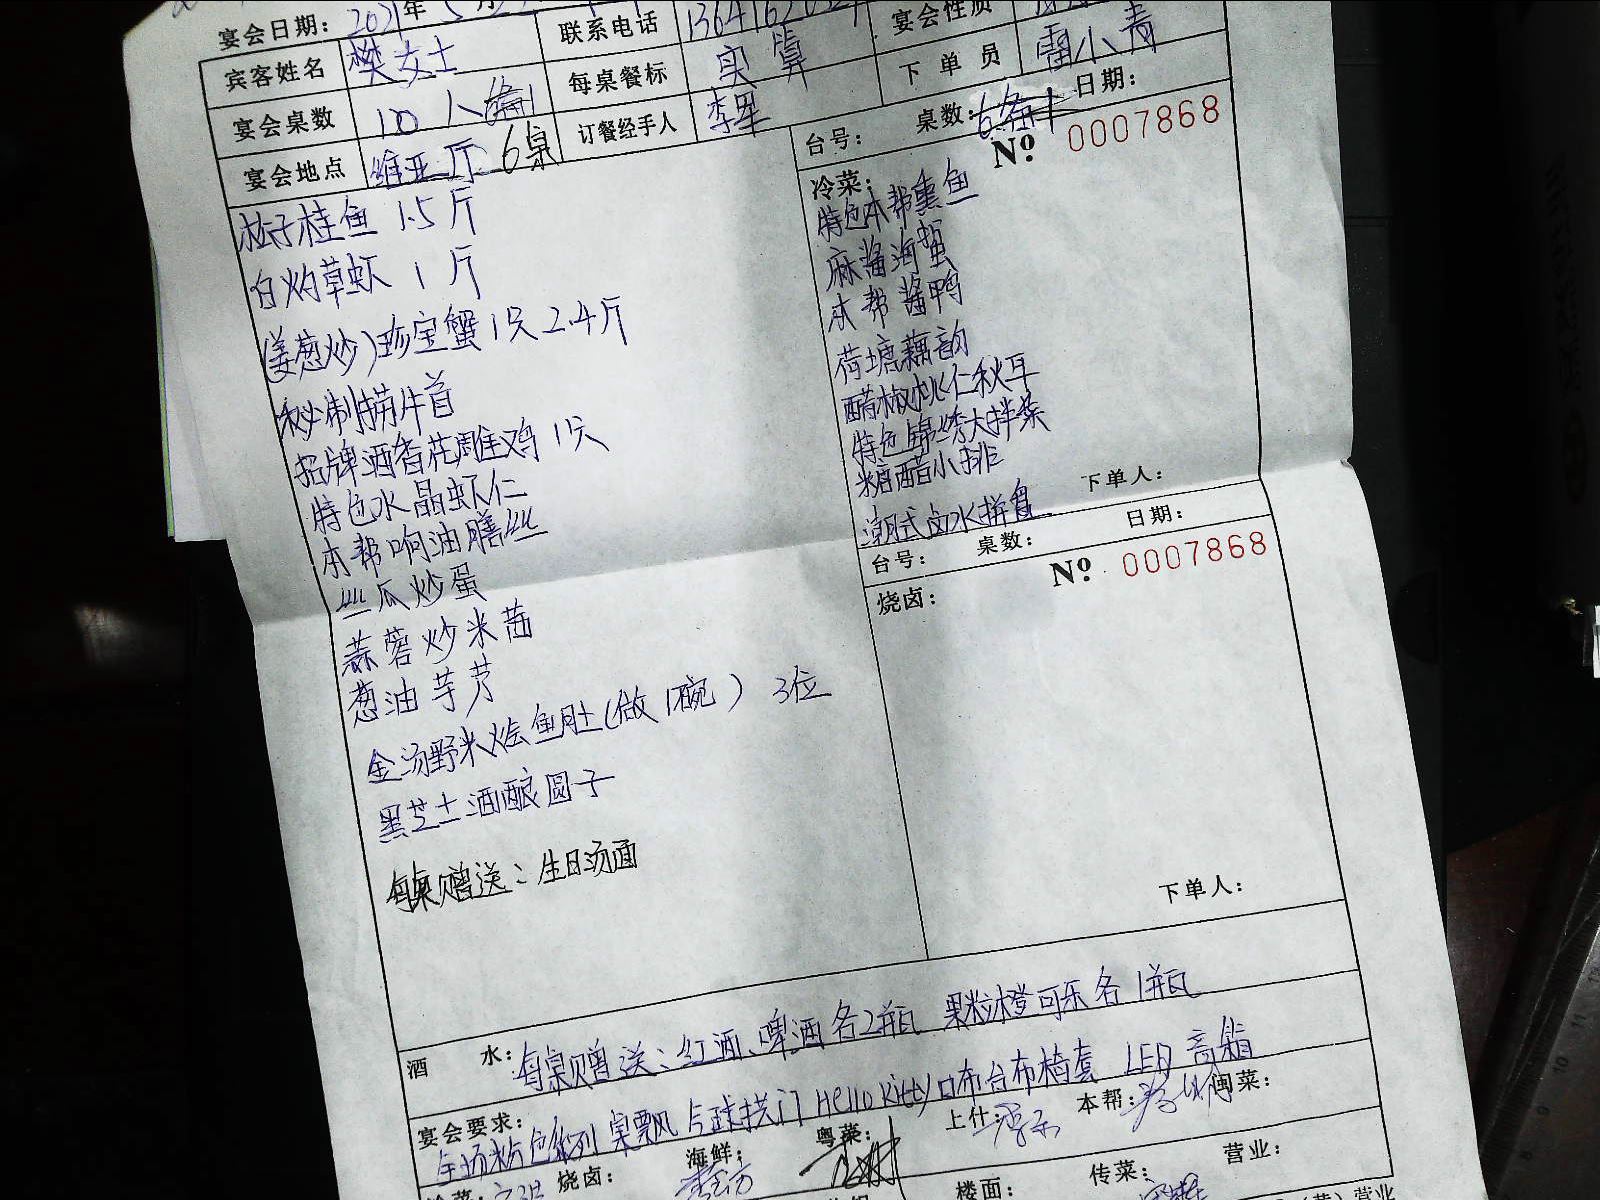 宴会日期： 2021年5月
联系电话
宴会性质
宾客姓名 樊女士
每桌餐标 实算
下单员 雷小青
宴会桌数 100人
订餐经手人 李军
台号： 桌数： 日期：
宴会地点 维亚厅 6桌
№ 0007868
松子桂鱼 1.5斤
白灼草虾 1斤
(姜葱炒)珍宝蟹1只2.4斤
秘制捞汁
招牌酒香花雕鸡1只
特色水晶虾仁
本帮响油膳丝
丝瓜炒蛋
蒜蓉炒米茜
葱油芋艿
金汤野米烩鱼肚(做1碗) 3位
黑芝士酒酿圆子
每桌赠送：生日汤面
冷菜：
特色本帮熏鱼
麻酱海蜇
本帮酱鸭
荷塘藕韵
醋椒桃仁秋耳
特色锦绣大拌菜
糖醋小排
潮式卤水拼盘
下单人：
台号： 桌数： 日期：
№ 0007868
烧卤：
下单人：
酒水： 每桌赠送：红酒、啤酒各2瓶 果粒橙可乐各1瓶
宴会要求：
全场粉色系列 气球拱门 Hello Kitty口布台布椅套 LED 音箱
烧卤： 海鲜： 粤菜： 上什： 本帮： 闽菜：
楼面： 传菜： 营业：